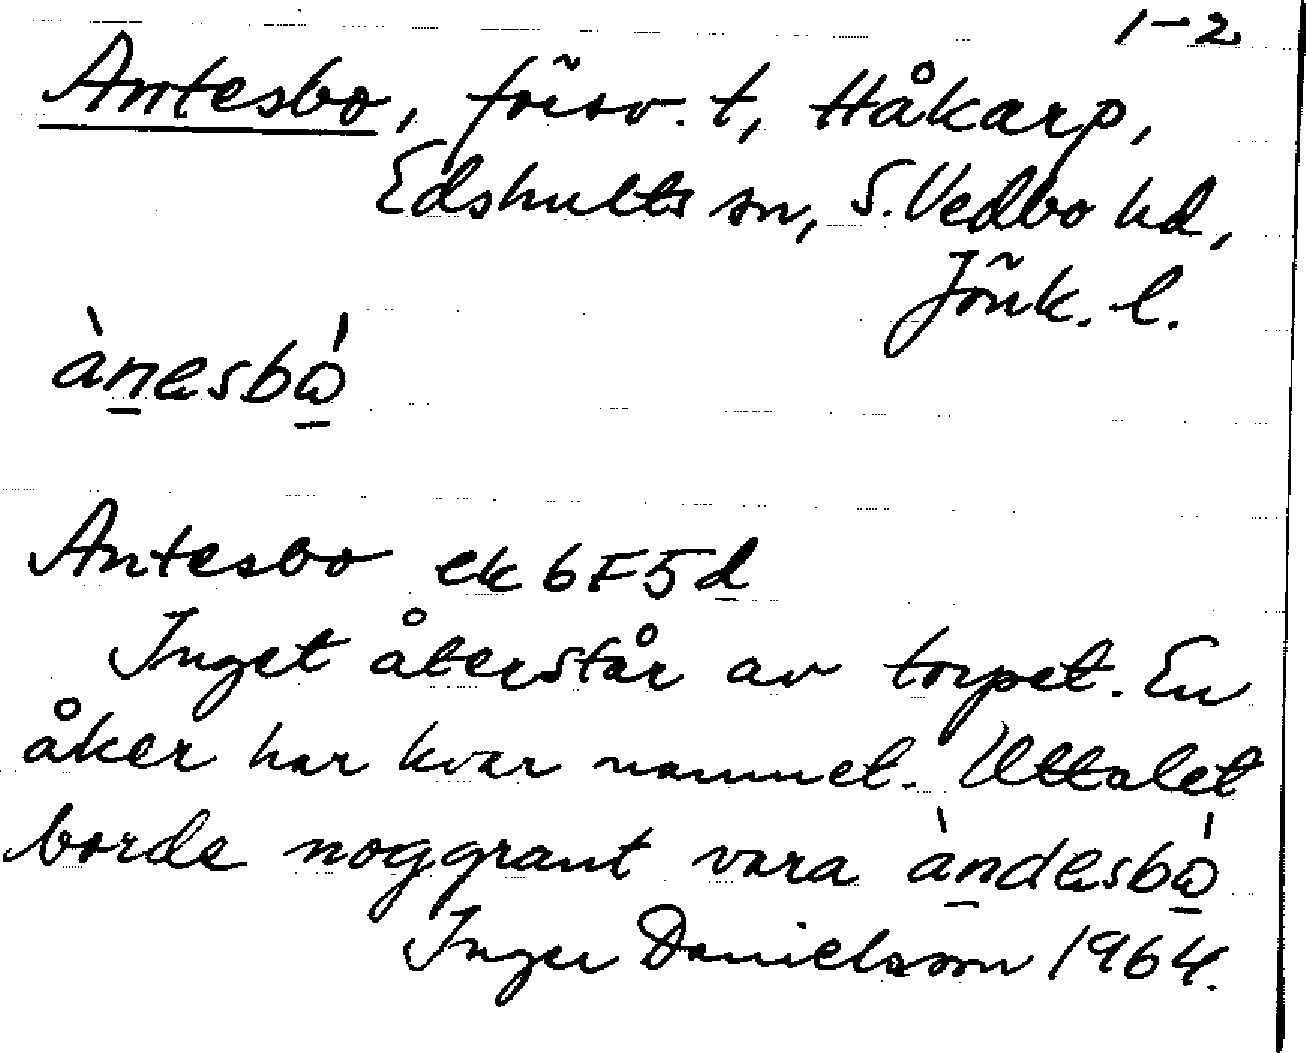 1-2
Antesbo, försv. t, Håkarp,
Edshults sn, S. Vedbo hd,
Jönk. l.
ànesbò
Antesbo ek 6F5d
Inget återstår av torpet. En
åker har kvar namnet. Uttalet
borde noggrant vara àndesbò
Inger Danielsson 1964.